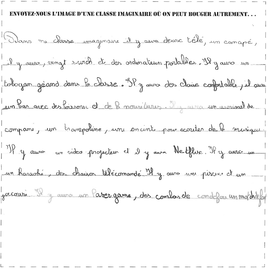 ENVOYEZ-NOUS L'IMAGE D'UNE CLASSE IMAGINAIRE OÙ ON PEUT BOUGER AUTREMENT. . .
Dans ma classe imaginaire il y aura douze télé, un canapé,
il y aura, vingt et des ordinateurs portables. Il y aura un
toboggan géant dans la classe. Il y aura des chaises confortable, il aura
un bar avec des boissons et de la nourriture. Il y aura un
un trampoline, une enceinte pour écouter de la musique
Il y aura un vidéo projecteur et il y aura Netflix. Il y aura
un karaoké, des télécommandé. Il y aura une piscine et un
jacuzzi. Il y aura un laser game, des combas de